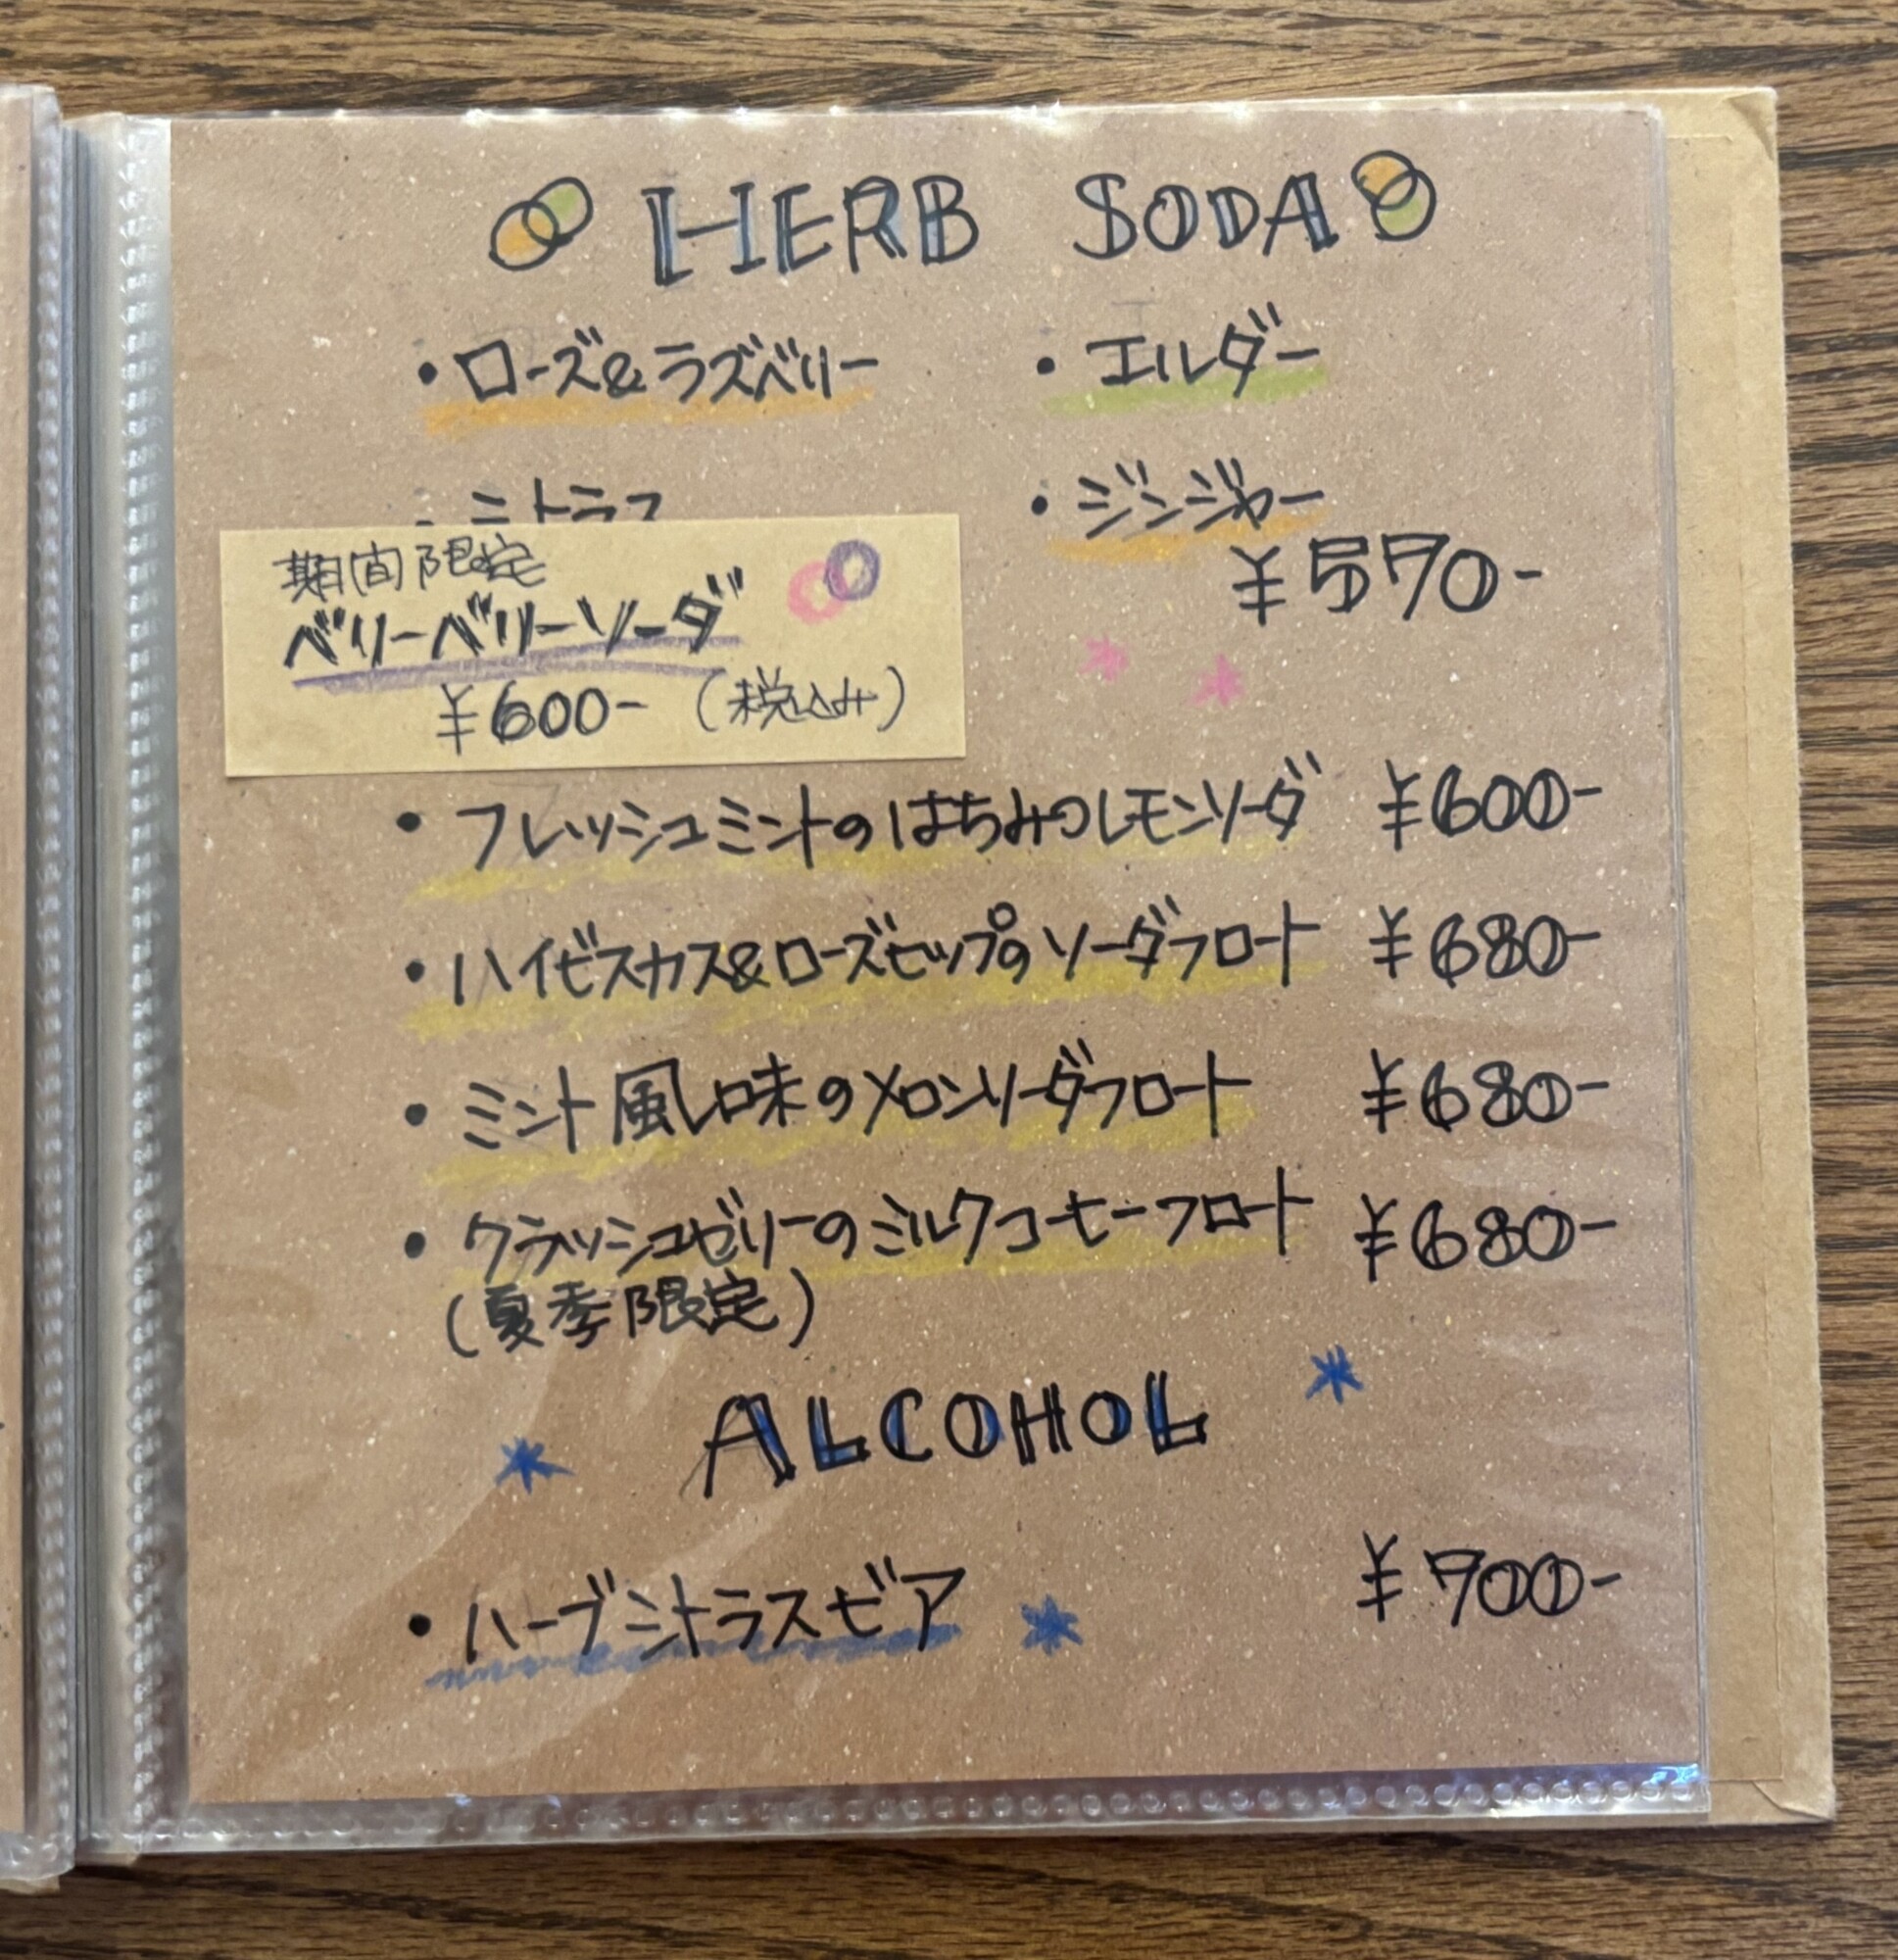 HERB SODA
・ローズ&ラズベリー ・エルダー
・シトラス ・ジンジャー
¥570-
期間限定
ベリーベリーソーダ
¥600-(税込み)
・フレッシュミントのはちみつレモンソーダ ¥600-
・ハイビスカス&ローズヒップのソーダフロート ¥680-
・ミント風味のメロンソーダフロート ¥680-
・クラッシュゼリーのミルクコーヒーフロート ¥680-
(夏季限定)
ALCOHOL
・ハーブシトラスビア ¥700-